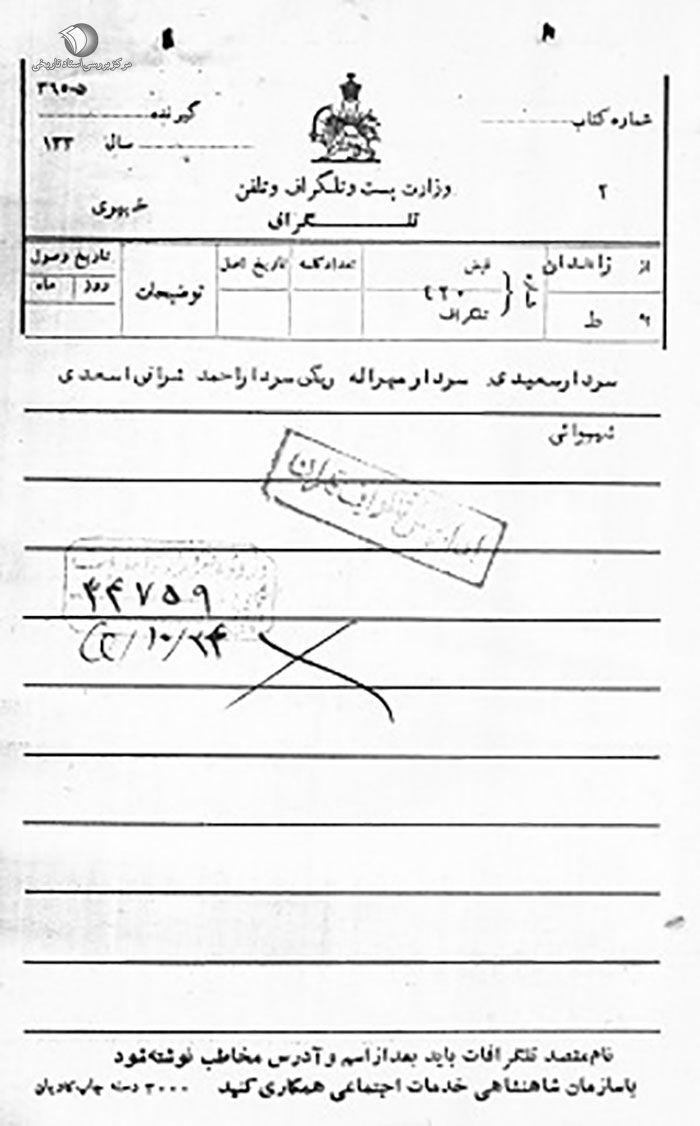 مرکز بررسی اسناد تاریخی
۳۹۵-۵
شماره کتاب
گیرنده
سال ۱۳۳
۲
وزارت پست و تلگراف و تلفن
شهری
تلگرافی
از زاهدان
قبض
تعداد کلمه
تاریخ اصل
توضیحات
تاریخ وصول
روز ماه
به ط
تلگراف
سردار سعیدی سردار مهراله ریگی سردار احمد اسعدی
شهبوانی
۴۴۷۵۹
نام مقصد تلگرافات باید بعد از اسم و آدرس مخاطب نوشته شود
با سازمان شاهنشاهی خدمات اجتماعی همکاری کنید ۳۰۰۰ دسته چاپ کادیان